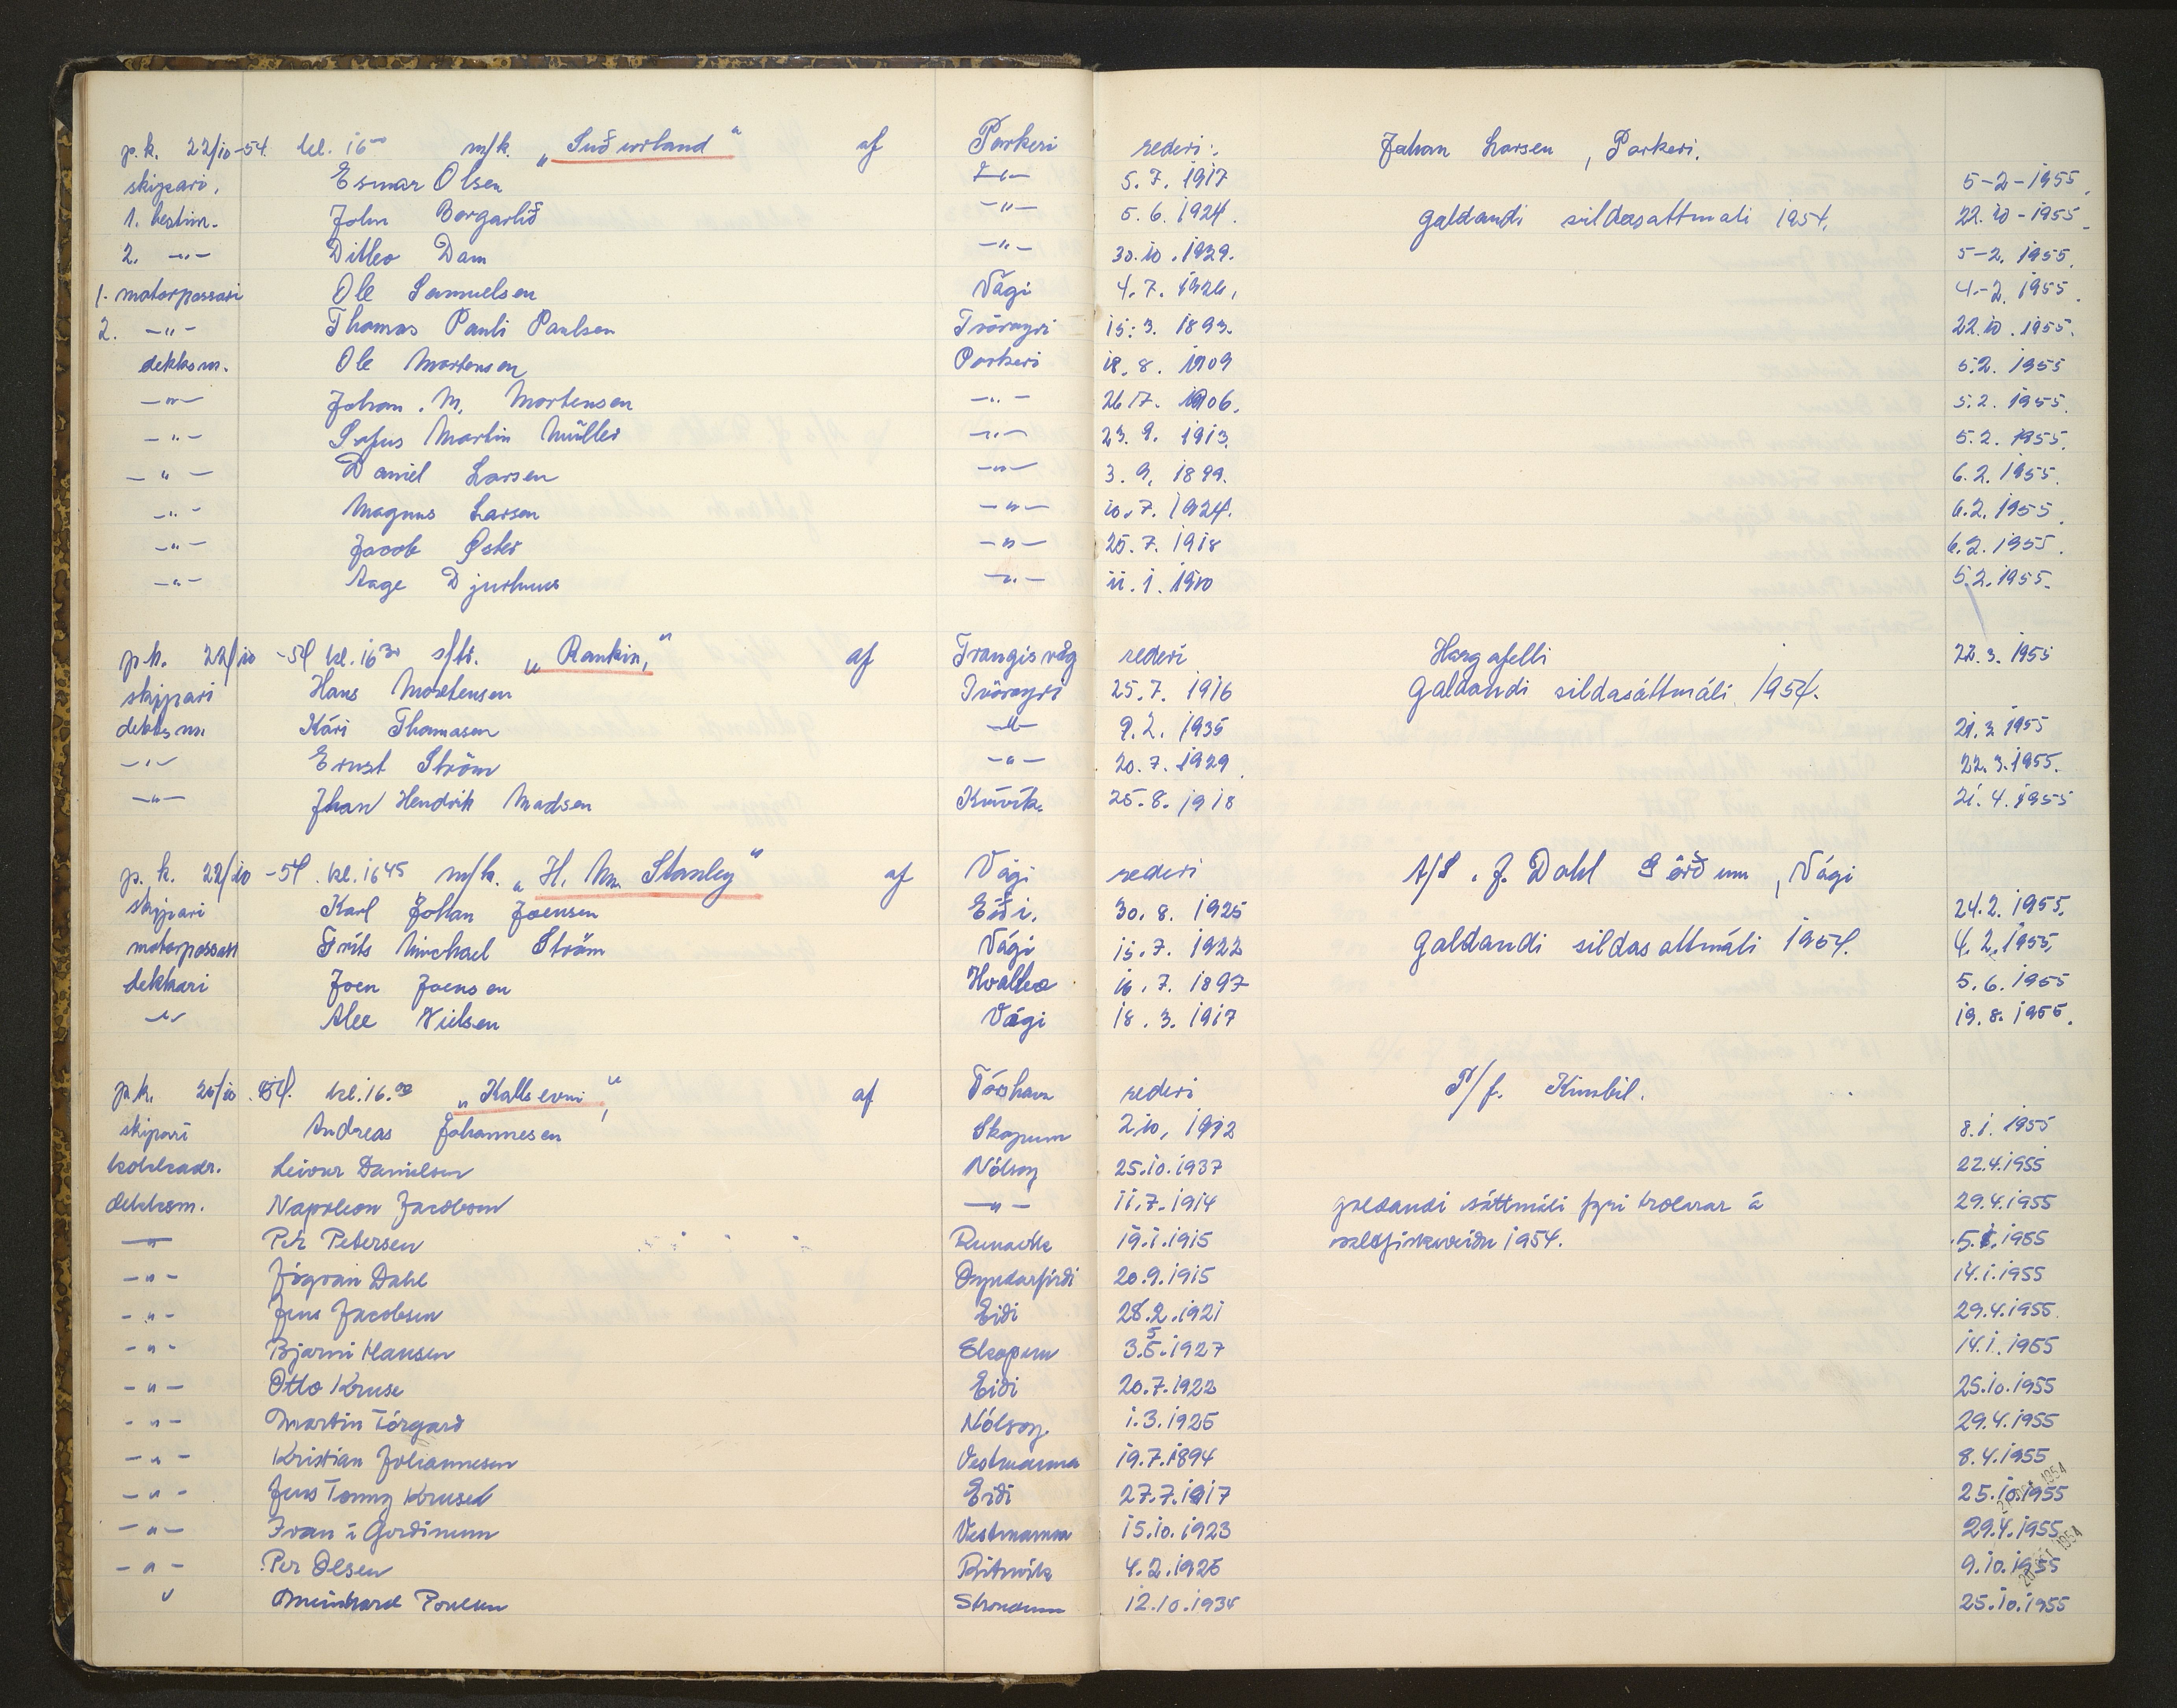 p.k. 22/10-54. kl. 16⁰⁰ m/k. „Suðurland“ af Porkeri rederi: Johan Larsen, Porkeri.
skipari. Esmar Olsen -"- 5.7.1917 5-2-1955.
1. bestm. John Borgarlið -"- 5.6.1924. galdandi sildasattmali 1954. 22.10-1955.
2. -"- Ditlev Dam -"- 30.10.1929. 5-2.1955.
1. motorpassari Ole Samuelsen Vági 4.7.1926. 4.-2.1955.
2. -"- Thomas Pauli Paulsen Tvöroyri 15.3.1893. 22.10.1955.
dekksm. Ole Mortensen Porkeri 18.8.1909 5.2.1955
-"- Johan. M. Mortensen -"- 26.7.1906. 5.2.1955.
-"- Sofus Martin Müller -"- 23.9.1913. 5.2.1955.
-"- Daniel Larsen -"- 3.9.1899. 6.2.1955.
-"- Magnus Larsen -"- 10.7.1924. 6.2.1955.
-"- Jacob Øster -"- 25.7.1918 6.2.1955.
-"- Aage Djurhuus -"- 11.1.1910 5.2.1955.
p.k. 22/10-54 kl. 16³⁰ s/tr. „Rankin,“ af Trangisvág rederi Hargafelli 22.3.1955
skippari Hans Mortensen Tvöroyri 25.7.1916 galdandi sildasáttmáli 1954.
dekksm. Kári Thomasen -"- 9.2.1935 21.3.1955
-"- Ernst Ström -"- 20.7.1929. 22.3.1955.
-"- Jhan Hendrik Madsen Kvívík. 25.8.1918 21.4.1955
p.k. 22/10-54. kl. 16⁴⁵ m/k. „H. M. Stanley“ af Vági rederi A/S. J. Dahl Görðum, Vági
skippari Karl Johan Joensen Eiði. 30.8.1925 24.2.1955.
motorpassari Fríts Michael Ström Vági 15.7.1922 galdandi sildasattmáli 1954. 4.2.1955.
dekkari Joen Joensen Hvalba 16.7.1897 5.6.1955
-"- Alee Nielsen Vági 18.3.1917 19.8.1955.
p.k. 25/10.54. kl. 16.⁰⁰ „Kallsevni“, af Tórshavn rederi P/f. Kimbil.
skipari Andreas Johannesen Skopun 2.10.1912 8.1.1955
kokkadr. Leivur Danielsen Nólsoy 25.10.1937 22.4.1955
dekksm. Napoleon Jacobsen -"- 11.7.1914 galdandi sáttmáli fyri trolarar á 29.4.1955
-"- Petr Petersen Runavík 19.1.1915 saltfiskaveiðu 1954. 5.1.1955
-"- Jógvan Dahl Oyndarfirði 20.9.1915 14.1.1955
-"- Jens Jacobsen Eiði 28.2.1921 29.4.1955
-"- Bjarni Hansen Skopun 3.5.1927 14.1.1955
-"- Otto Kruse Eiði 20.7.1922 25.10.1955
-"- Martin Tórgarð Nólsoy. 1.3.1925 29.4.1955
-"- Kristian Johannesen Vestmanna 19.7.1894 8.4.1955
-"- Jens Tommy Kruse Eiði 27.7.1917 25.10.1955
-"- Ivan í Gerðinum Vestmanna 15.10.1923 29.4.1955
-"- Per Olsen Rituvík 4.2.1925 9.10.1955
" Meinhard Poulsen Strendum 12.10.1934 25.10.1955